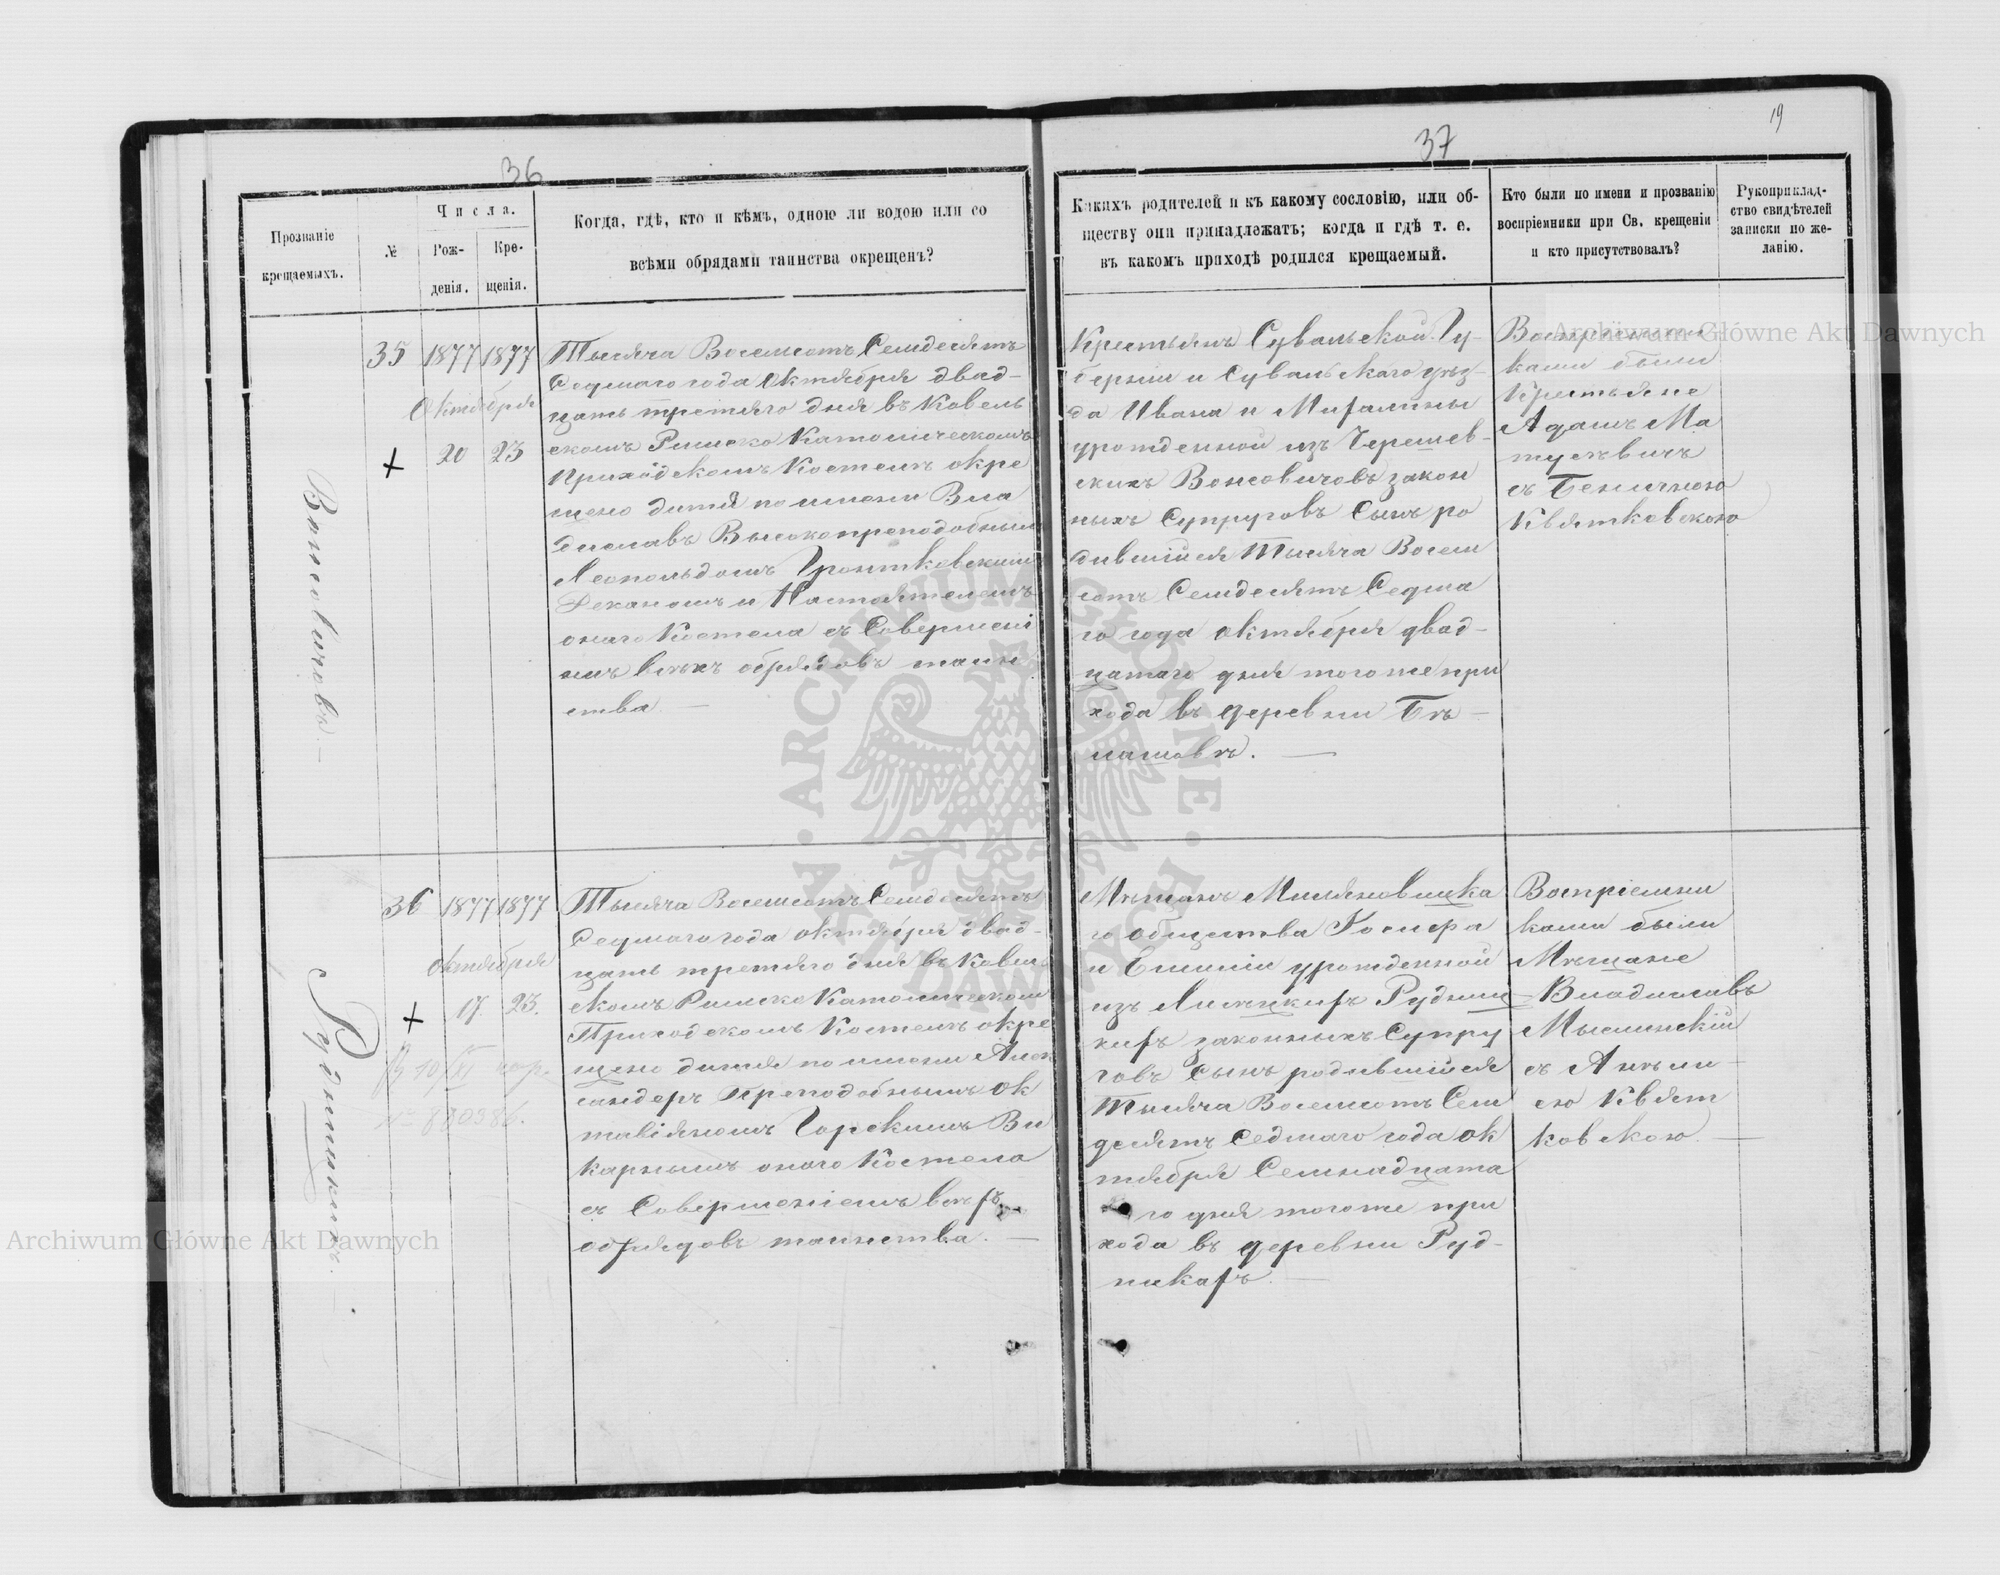 36
Прозваніе крещаемыхъ.
№
Числа.
Рож-
денія.
Кре-
щенія.
Когда, гдѣ, кто и кѣмъ, одною ли водою или со
всѣми обрядами таинства окрещенъ?
Вонсовичовъ
35 1877 1877
Октября
20 23
Тысяча Восемсотъ Семдесятъ
Седмаго года Октября двад-
цать третяго дня въ Ковель
скомъ Римско Католическомъ
Приходскомъ Костелѣ окре
щено дитя по имени Вла
диславъ Высокопреподобнымъ
Леопольдомъ
Деканомъ и Настоятелемъ
онаго Костела съ Совершені
емъ всѣхъ обрядовъ таин
ства. —
Рудницкихъ.
36 1877 1877
Октября
17. 23.
Тысяча Восемсотъ Семдесятъ
Седмаго года октября двад-
цать третяго дня въ Ковель
скомъ Римско Католическом
Приходскомъ Костелѣ окре
щено дитя по имени Алек
сандеръ Преподобнымъ Ок
тавіяномъ Горскимъ Ви
карнымъ онаго Костела
съ Совершеніемъ всѣхъ
обрядовъ таинства. —
37
19
Какихъ родителей и къ какому сословію, или об-
ществу они принадлежатъ; когда и гдѣ т. е.
въ какомъ приходѣ родился крещаемый.
Кто были по имени и прозванію
воспріемники при Св. крещеніи
и кто присутствовалъ?
Рукоприклад-
ство свидѣтелей
записки по же-
ланію.
Крестьянъ Сувальской Гу-
берніи и Сувальскаго уѣз-
да Ивана и Михалины
урожденной изъ Черешев-
скихъ Вонсовичовъ закон
ныхъ Супруговъ Сынъ ро
дившійся Тысяча Восем
сотъ Семдесятъ Седма
го года октября двад-
цатаго дня того же при
хода въ деревни
Воспріемни
ками были
Крестьяне
Адамъ Ма
тулевичъ
съ
Квятковскою
Мѣщанъ
го общества
и Емиліи урожденной
изъ Рудниц
кихъ законныхъ Супру
говъ Сынъ родившійся
Тысяча Восемсотъ Сем
десятъ Седмаго года ок
тября Семнадцата
го дня того же при
хода въ деревни Руд-
никахъ. —
Воспріемни
ками были
Мѣщане
Владиславъ
Мыслинскій
съ
Квят
ковскою. —
Archiwum Główne Akt Dawnych
Archiwum Główne Akt Dawnych
ARCHIWUM GŁÓWNE AKT DAWNYCH